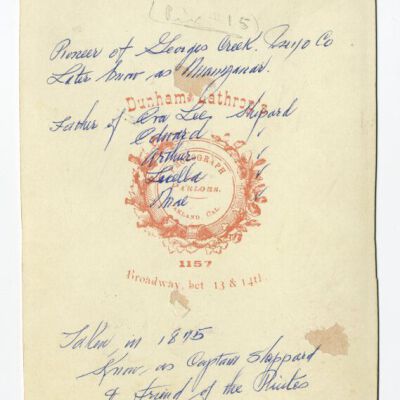 (Pix #15)
Pioneer of Georges Creek. Inyo Co
Later know as Manzanar.
Dunham & Lathrop's
Father of Ora Lee Shepard
Edward
Arthur
Luella
Mae
PHOTOGRAPH
PARLORS.
OAKLAND, CAL.
1157
Broadway, bet 13 & 14th.
Taken in 1875
Know as Captain Sheppard
A Friend of the Piutes